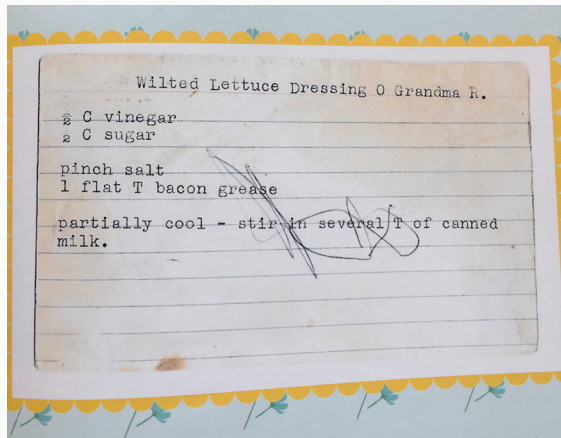 Wilted Lettuce Dressing O Grandma R.
½ C vinegar
½ C sugar
pinch salt
1 flat T bacon grease
partially cool - stir in several T of canned
milk.